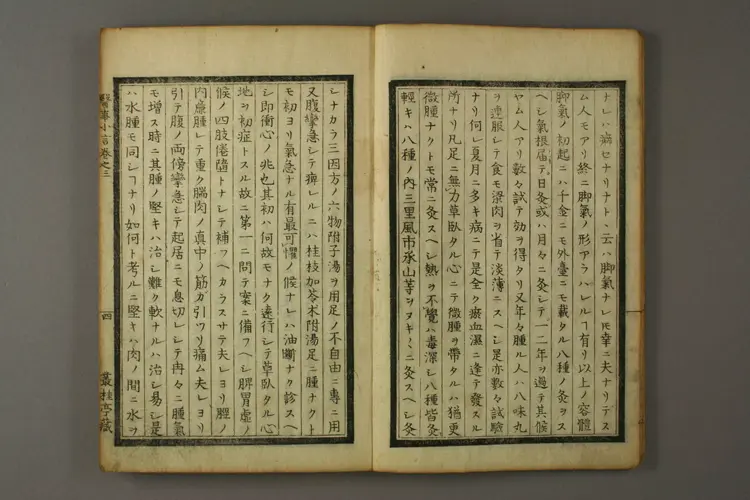 ナレハ癖セナリナト丶云ハ脚氣ナレモ幸ニ夫ナリデス
ム人モアリ終ニ脚氣ノ形アラハレルヿ有リ以上ノ容體
脚氣ノ初起ニハ千金ニモ外臺ニモ載タル八種ノ灸ヲス
ヘシ氣根届テ日灸或ハ月々ニ灸シテ一二年ヲ過テ其候
ヤム人アリ數々試テ効ヲ得タリ又年々腫ル人ハ八味丸
ヲ連服シテ食モ梁肉ヲ省テ淡薄ニスヘシ是亦數々試驗
ナリ何レ夏月ニ多キ病ニテ是全ク瘀血濕ニ逢テ發スル
所ナリ凡足ニ無力草臥タル心ニテ微腫ヲ帶タルハ猶更
微腫ナクトモ常ニ灸スヘシ熱ヲ不覺ハ毒深シ八種皆灸
輕キハ八種ノ内三里風市承山等ヲヌキ〳〵ニ灸スヘシ灸
シナカラ三因方ノ六物附子湯ヲ用足ノ不自由ニ專ニ用
又腹攣急シテ痺レルニハ桂枝加苓朮附湯足ニ腫ナクト
モ初ヨリ氣急ナル有最可懼ノ候ナレハ油斷ナク診スヘ
シ即衝心ノ兆也其初ハ何故モナク遠行シテ草臥タル心
地ヲ初症トスル故ニ第一ニ問テ案ニ備フヘシ脾胃虚ノ
候ノ四肢倦墮トナシテ補フヘカラスサテ夫レヨリ脛ノ
内廉腫レテ重ク腨肉ノ真中ノ筋ガ引ツリ痛ム夫レヨリ
引テ腹ノ両傍攣急シテ起居ニモ息切レシテ冉々ニ腫氣
モ增ス時ニ其腫ノ堅キハ治シ難ク軟ナルハ治シ易シ是
ハ水腫モ同シヿナリ如何ト考ルニ堅キハ肉ノ間ニ水ヲ
醫事小言卷之三
四
叢桂亭藏